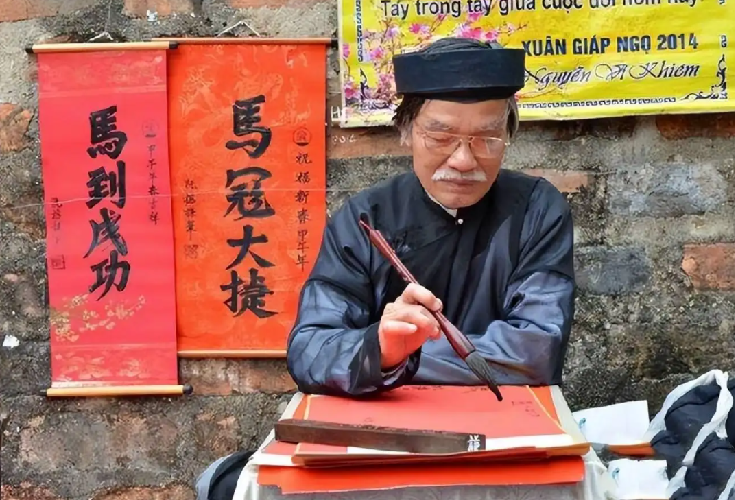 Tay trong tay giữa cuộc đời hôm nay
XUÂN GIÁP NGỌ 2014
Nguyễn Vĩ Khiêm
馬到成功
甲午年春吉祥
祝福新春甲午年
馬冠大捷